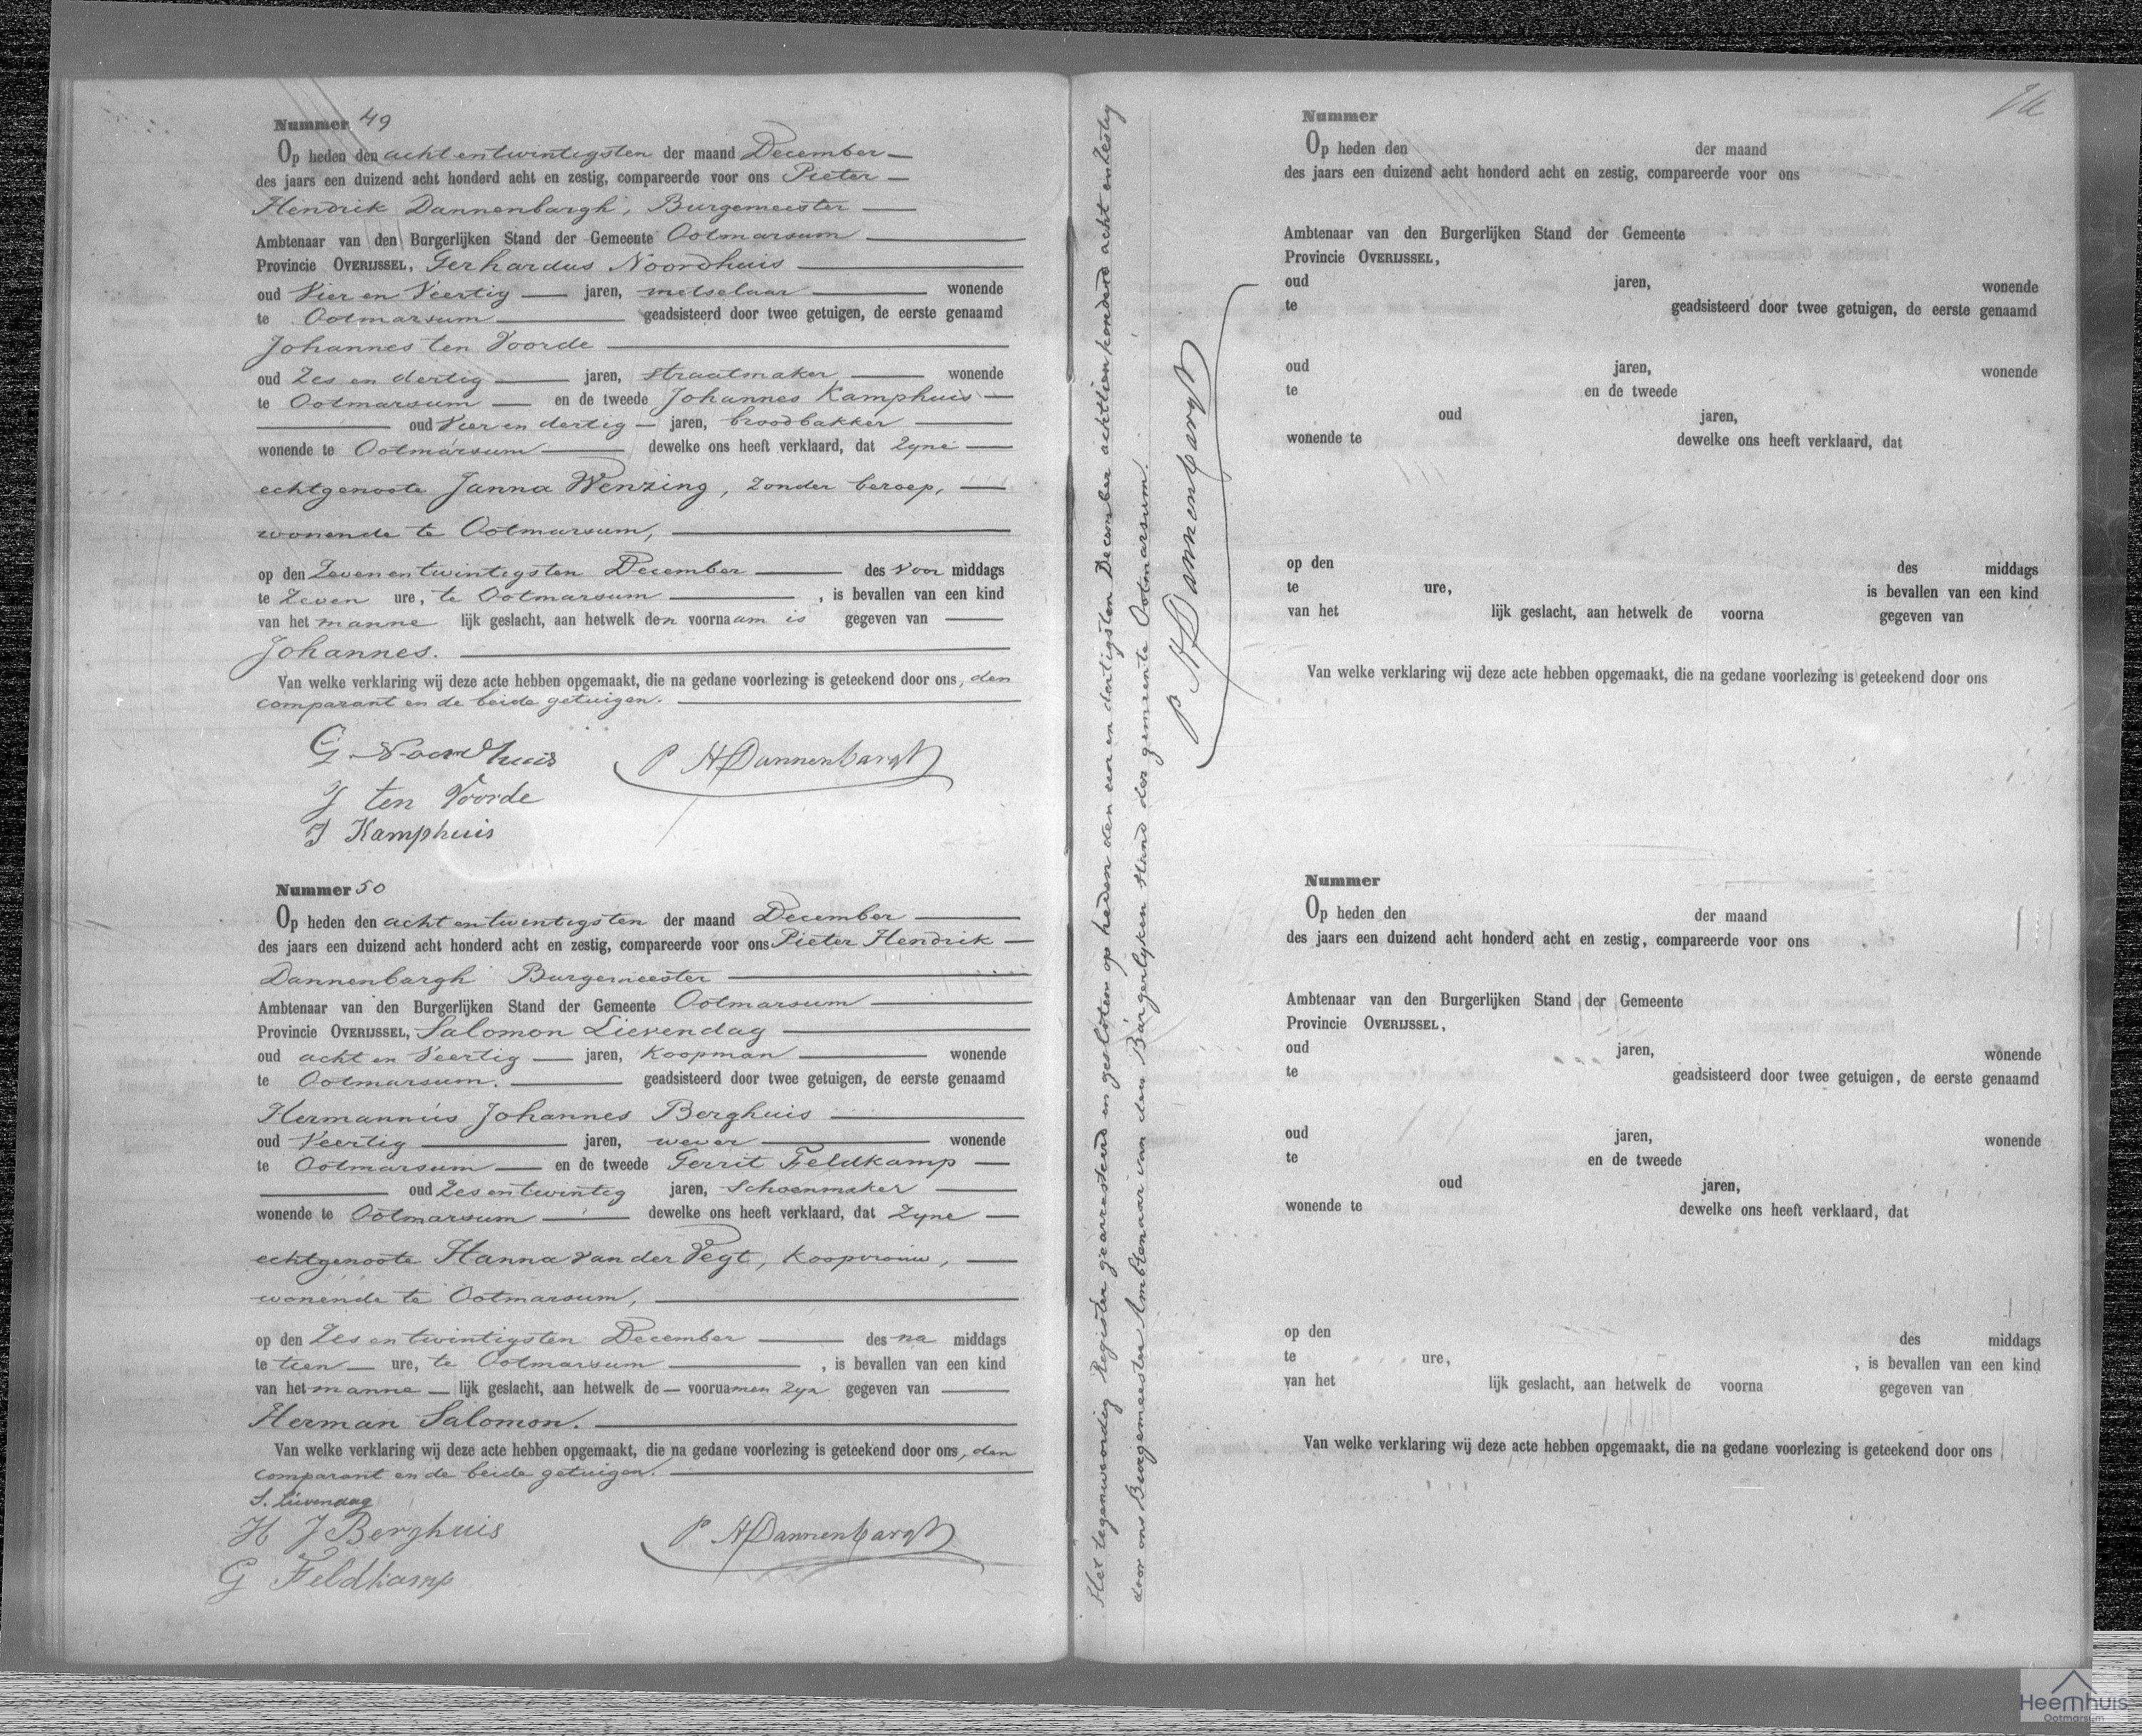 Nummer 49
Op heden den acht en twintigsten der maand December
des jaars een duizend acht honderd acht en zestig, compareerde voor ons Pieter
Hendrik Dannenbargh, Burgemeester
Ambtenaar van den Burgerlijken Stand der Gemeente Ootmarsum
Provincie OVERIJSSEL, Gerhardus Noordhuis
oud Vier en Veertig jaren, metselaar wonende
te Ootmarsum geadsisteerd door twee getuigen, de eerste genaamd
Johannes ten Voorde
oud Zes en dertig jaren, straatmaker wonende
te Ootmarsum en de tweede Johannes Kamphuis
oud Vier en dertig jaren, broodbakker
wonende te Ootmarsum dewelke ons heeft verklaard, dat Zyne
echtgenoote Janna Wenzing, zonder beroep,
wonende te Ootmarsum,
op den Zeven en twintigsten December des voor middags
te Zeven ure, te Ootmarsum, is bevallen van een kind
van het manne lijk geslacht, aan hetwelk den voornaam is gegeven van
Johannes.
Van welke verklaring wij deze acte hebben opgemaakt, die na gedane voorlezing is geteekend door ons, den
comparant en de beide getuigen.
G Noordhuis
P H Dannenbargh
J ten Voorde
J Kamphuis
Nummer 50
Op heden den acht en twintigsten der maand December
des jaars een duizend acht honderd acht en zestig, compareerde voor ons Pieter Hendrik
Dannenbargh Burgemeester
Ambtenaar van den Burgerlijken Stand der Gemeente Ootmarsum
Provincie OVERIJSSEL, Salomon Lievendag
oud acht en Veertig jaren, Koopman wonende
te Ootmarsum. geadsisteerd door twee getuigen, de eerste genaamd
Hermannus Johannes Berghuis
oud Veertig jaren, wever wonende
te Ootmarsum en de tweede Gerrit Feldkamp
oud Zes en twintig jaren, Schoenmaker
wonende te Ootmarsum dewelke ons heeft verklaard, dat Zyne
echtgenoote Hanna van der Vegt, Koopvrouw,
wonende te Ootmarsum,
op den Zes en twintigsten December des na middags
te tien ure, te Ootmarsum, is bevallen van een kind
van het manne lijk geslacht, aan hetwelk de voornamen zyn gegeven van
Herman Salomon.
Van welke verklaring wij deze acte hebben opgemaakt, die na gedane voorlezing is geteekend door ons, den
comparant en de beide getuigen.
S. Lievendag
H J Berghuis
P H Dannenbargh
G Feldkamp
Het tegenwoordig Register gearresteerd en gesloten op heden den een en dertigsten December achttienhonderd acht en zestig
door ons Burgemeester Ambtenaar van den Burgerlyken stand der gemeente Ootmarsum.
P H Dannenbargh
Nummer
Op heden den der maand
des jaars een duizend acht honderd acht en zestig, compareerde voor ons
Ambtenaar van den Burgerlijken Stand der Gemeente
Provincie OVERIJSSEL,
oud jaren, wonende
te geadsisteerd door twee getuigen, de eerste genaamd
oud jaren, wonende
te en de tweede
oud jaren,
wonende te dewelke ons heeft verklaard, dat
op den des middags
te ure, is bevallen van een kind
van het lijk geslacht, aan hetwelk de voorna gegeven van
Van welke verklaring wij deze acte hebben opgemaakt, die na gedane voorlezing is geteekend door ons
Nummer
Op heden den der maand
des jaars een duizend acht honderd acht en zestig, compareerde voor ons
Ambtenaar van den Burgerlijken Stand der Gemeente
Provincie OVERIJSSEL,
oud jaren, wonende
te geadsisteerd door twee getuigen, de eerste genaamd
oud jaren, wonende
te en de tweede
oud jaren,
wonende te dewelke ons heeft verklaard, dat
op den des middags
te ure, , is bevallen van een kind
van het lijk geslacht, aan hetwelk de voorna gegeven van
Van welke verklaring wij deze acte hebben opgemaakt, die na gedane voorlezing is geteekend door ons
Heemhuis
Ootmarsum